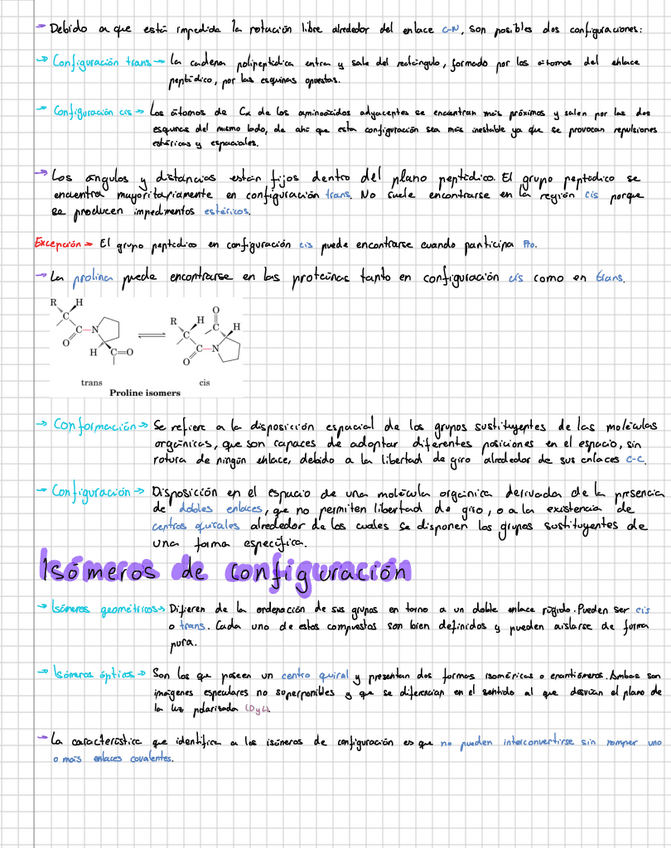 → Debido a que está impedida la rotación libre alrededor del enlace C-N, son posibles dos configuraciones:
→ Configuración trans → La cadena polipeptídica entra y sale del rectángulo, formado por los átomos del enlace
peptídico, por las esquinas opuestas.
→ Configuración cis → Los átomos de Cα de los aminoácidos adyacentes se encuentran más próximos y salen por las dos
esquinas del mismo lado, de ahí que esta configuración sea más inestable ya que se provocan repulsiones
estéricas y espaciales.
→ Los ángulos y distancias están fijos dentro del plano peptídico. El grupo peptídico se
encuentra mayoritariamente en configuración trans. No suele encontrarse en la región cis porque
se producen impedimentos estéricos.
Excepción → El grupo peptídico en configuración cis puede encontrarse cuando participa Pro.
→ La prolina puede encontrarse en las proteínas tanto en configuración cis como en trans.
R H
C
C-N
O
H C=O
R H
C
O
C
H
C-N
O
trans cis
Proline isomers
→ Conformación → Se refiere a la disposición espacial de los grupos sustituyentes de las moléculas
orgánicas, que son capaces de adoptar diferentes posiciones en el espacio, sin
rotura de ningún enlace, debido a la libertad de giro alrededor de sus enlaces C-C.
→ Configuración → Disposición en el espacio de una molécula orgánica derivada de la presencia
de dobles enlaces, que no permiten libertad de giro, o a la existencia de
centros quirales alrededor de los cuales se disponen los grupos sustituyentes de
una forma específica.
Isómeros de configuración
→ Isómeros geométricos → Difieren de la ordenación de sus grupos en torno a un doble enlace rígido. Pueden ser cis
o trans. Cada uno de estos compuestos son bien definidos y pueden aislarse de forma
pura.
→ Isómeros ópticos → Son los que poseen un centro quiral y presentan dos formas isoméricas o enantiómeros. Ambos son
imágenes especulares no superponibles y que se diferencian en el sentido al que desvían el plano de
la luz polarizada (D y L).
→ La característica que identifica a los isómeros de configuración es que no pueden interconvertirse sin romper uno
o más enlaces covalentes.